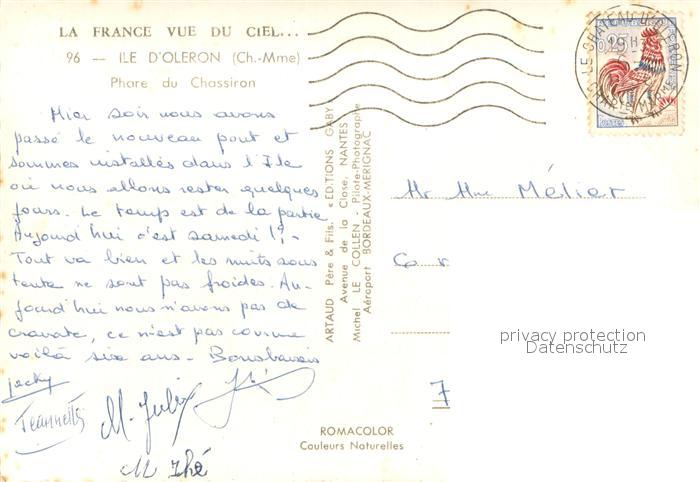 LA FRANCE VUE DU CIEL...
96 — ILE D'OLERON (Ch.-Mme)
Phare du Chassiron
Hier soir nous avons
passé le nouveau pont et
sommes installés dans l'Ile
où nous allons rester quelques
jours. Le temps est de la partie
Aujourd'hui c'est samedi !?-
Tout va bien et les nuits sous
tente ne sont pas froides. Au-
jourd'hui nous n'avons pas de
cravate, ce n'est pas comme
voilà six ans. Bons baisers
Jacky
Jeannette
M. Julix
ARTAUD Père & Fils. « EDITIONS GABY »
Avenue de la Close, NANTES
Michel LE COLLEN - Pilote-Photographe
Aéroport BORDEAUX-MERIGNAC
LE CHATEAU D'OLERON
0,25
POSTES
Mr Mme Mélier
privacy protection
Datenschutz
7
ROMACOLOR
Couleurs Naturelles